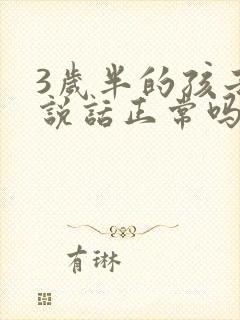 3歲半的孩子
說話正常吗
有琳